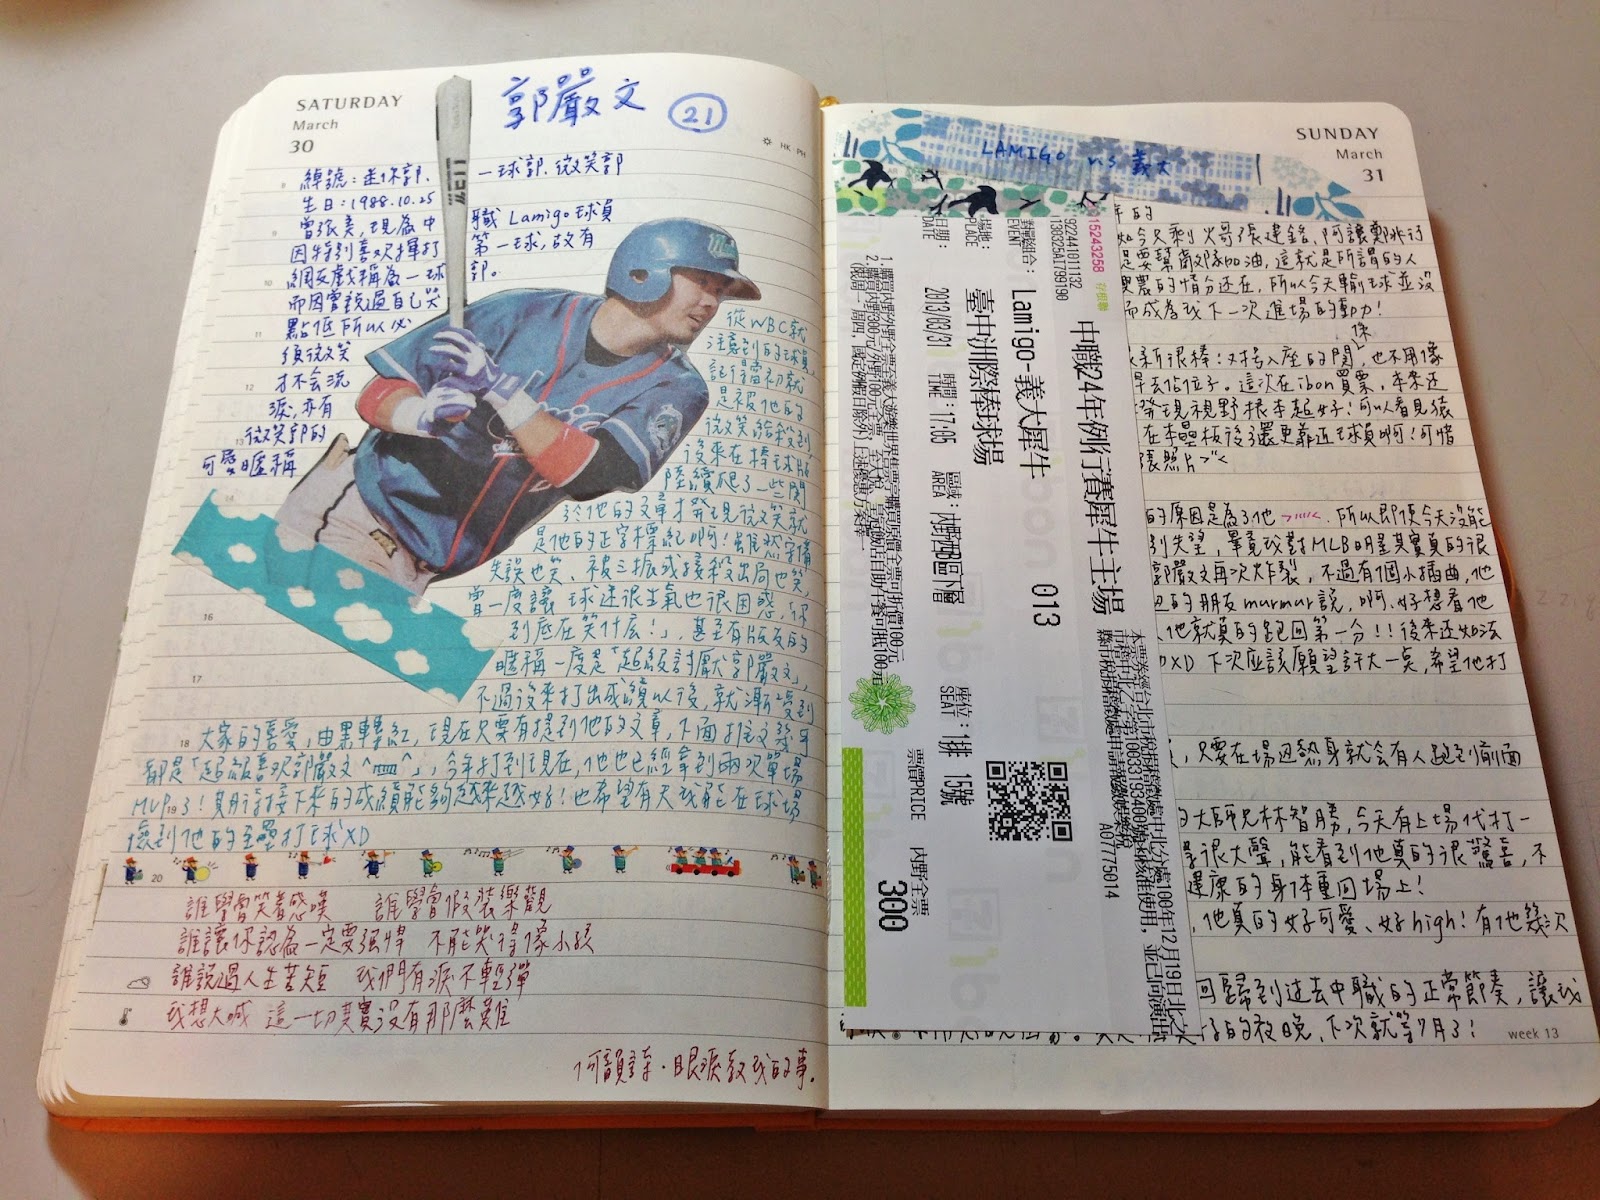 SATURDAY
March
30
郭嚴文 21
HK PH
綽號：迷你郭、一球郭、微笑郭
生日：1988.10.25
曾旅美，現為中職Lamigo球員
因特別喜歡揮打第一球，故有
網友戲稱為一球郭。
而因曾說過自己哭
點低所以必
須微笑
才不會流
淚，亦有
微笑郭的
可愛暱稱
從WBC就
注意到的球員，
記得當初就
是被他的
微笑給殺到
後來在棒球版
陸續爬了一些關
於他的文章才發現微笑就
是他的正字標記啊！雖然守備
失誤也笑、被三振或接殺出局也笑，
曾一度讓球迷很生氣也很困惑，「你
到底在笑什麼！」，甚至有版友的
暱稱一度是「超級討厭郭嚴文」，
不過後來打出成績以後，就漸漸受到
大家的喜愛，由黑轉紅，現在只要有提到他的文章，下面推文幾乎
都是「超級喜歡郭嚴文^皿^」，今年打到現在，他也已經拿到兩次單場
MVP了！期待接下來的成績能夠越來越好！也希望有天我能在球場
遇到他的全壘打球XD
誰學會笑著感嘆 誰學會假裝樂觀
誰讓你認為一定要強悍 不能哭得像小孩
誰說過人生苦短 我們有淚不輕彈
我想大喊 這一切其實沒有那麼難
何韻詩·眼淚教我的事。
SUNDAY
March
31
LAMIGO vs 義大
15243258
922441011132
中職24年例行賽犀牛主場
EVENT Lamigo-義大犀牛 013
場地：
PLACE 臺中洲際棒球場
日期：
DATE 2013/03/31 時間：17:05
TIME
區域：內野B區下層
AREA
座位：1排 15號
SEAT
票價PRICE 內野全票
300
A077175014
年的
如今只剩火哥張建銘、阿讓鄭兆行
是要幫鄰隊加油，這就是所謂的人
興農的情分還在，所以今天輸球並沒
而成為我下一次進場的動力！
新很棒！對號入座的關係，也不用像
早去佔位子。這次在ibon買票，本來還
發現視野根本超好！可以看見猿
在本壘板後了還更靠近球員啊！可惜
張照片＞＜
的原因是為了他，所以即使今天沒能
別失望，畢竟我對MLB明星其實真的很
郭嚴文再次炸裂，不過有個小插曲，他
的朋友murmur說，啊、好想看他
他就真的跑回第一分！！後來還如法
XD 下次應該願望許大一點，希望他打
只要在場邊熱身就會有人跑到前面
的大師兄林智勝，今天有上場代打一
很大聲，能看到他真的很驚喜，不
健康的身體重回場上！
他真的好可愛、好high！有他幾次
回歸到過去中職的正常節奏，讓我
的夜晚，下次就等7月了！
week 13